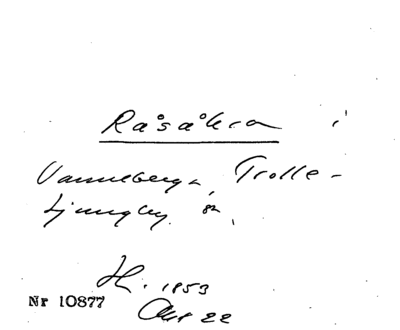 Råsåkra i
Vanneberga, Trolle-
Ljungby sn.
H. 1953
Nr 10877
Akt 22